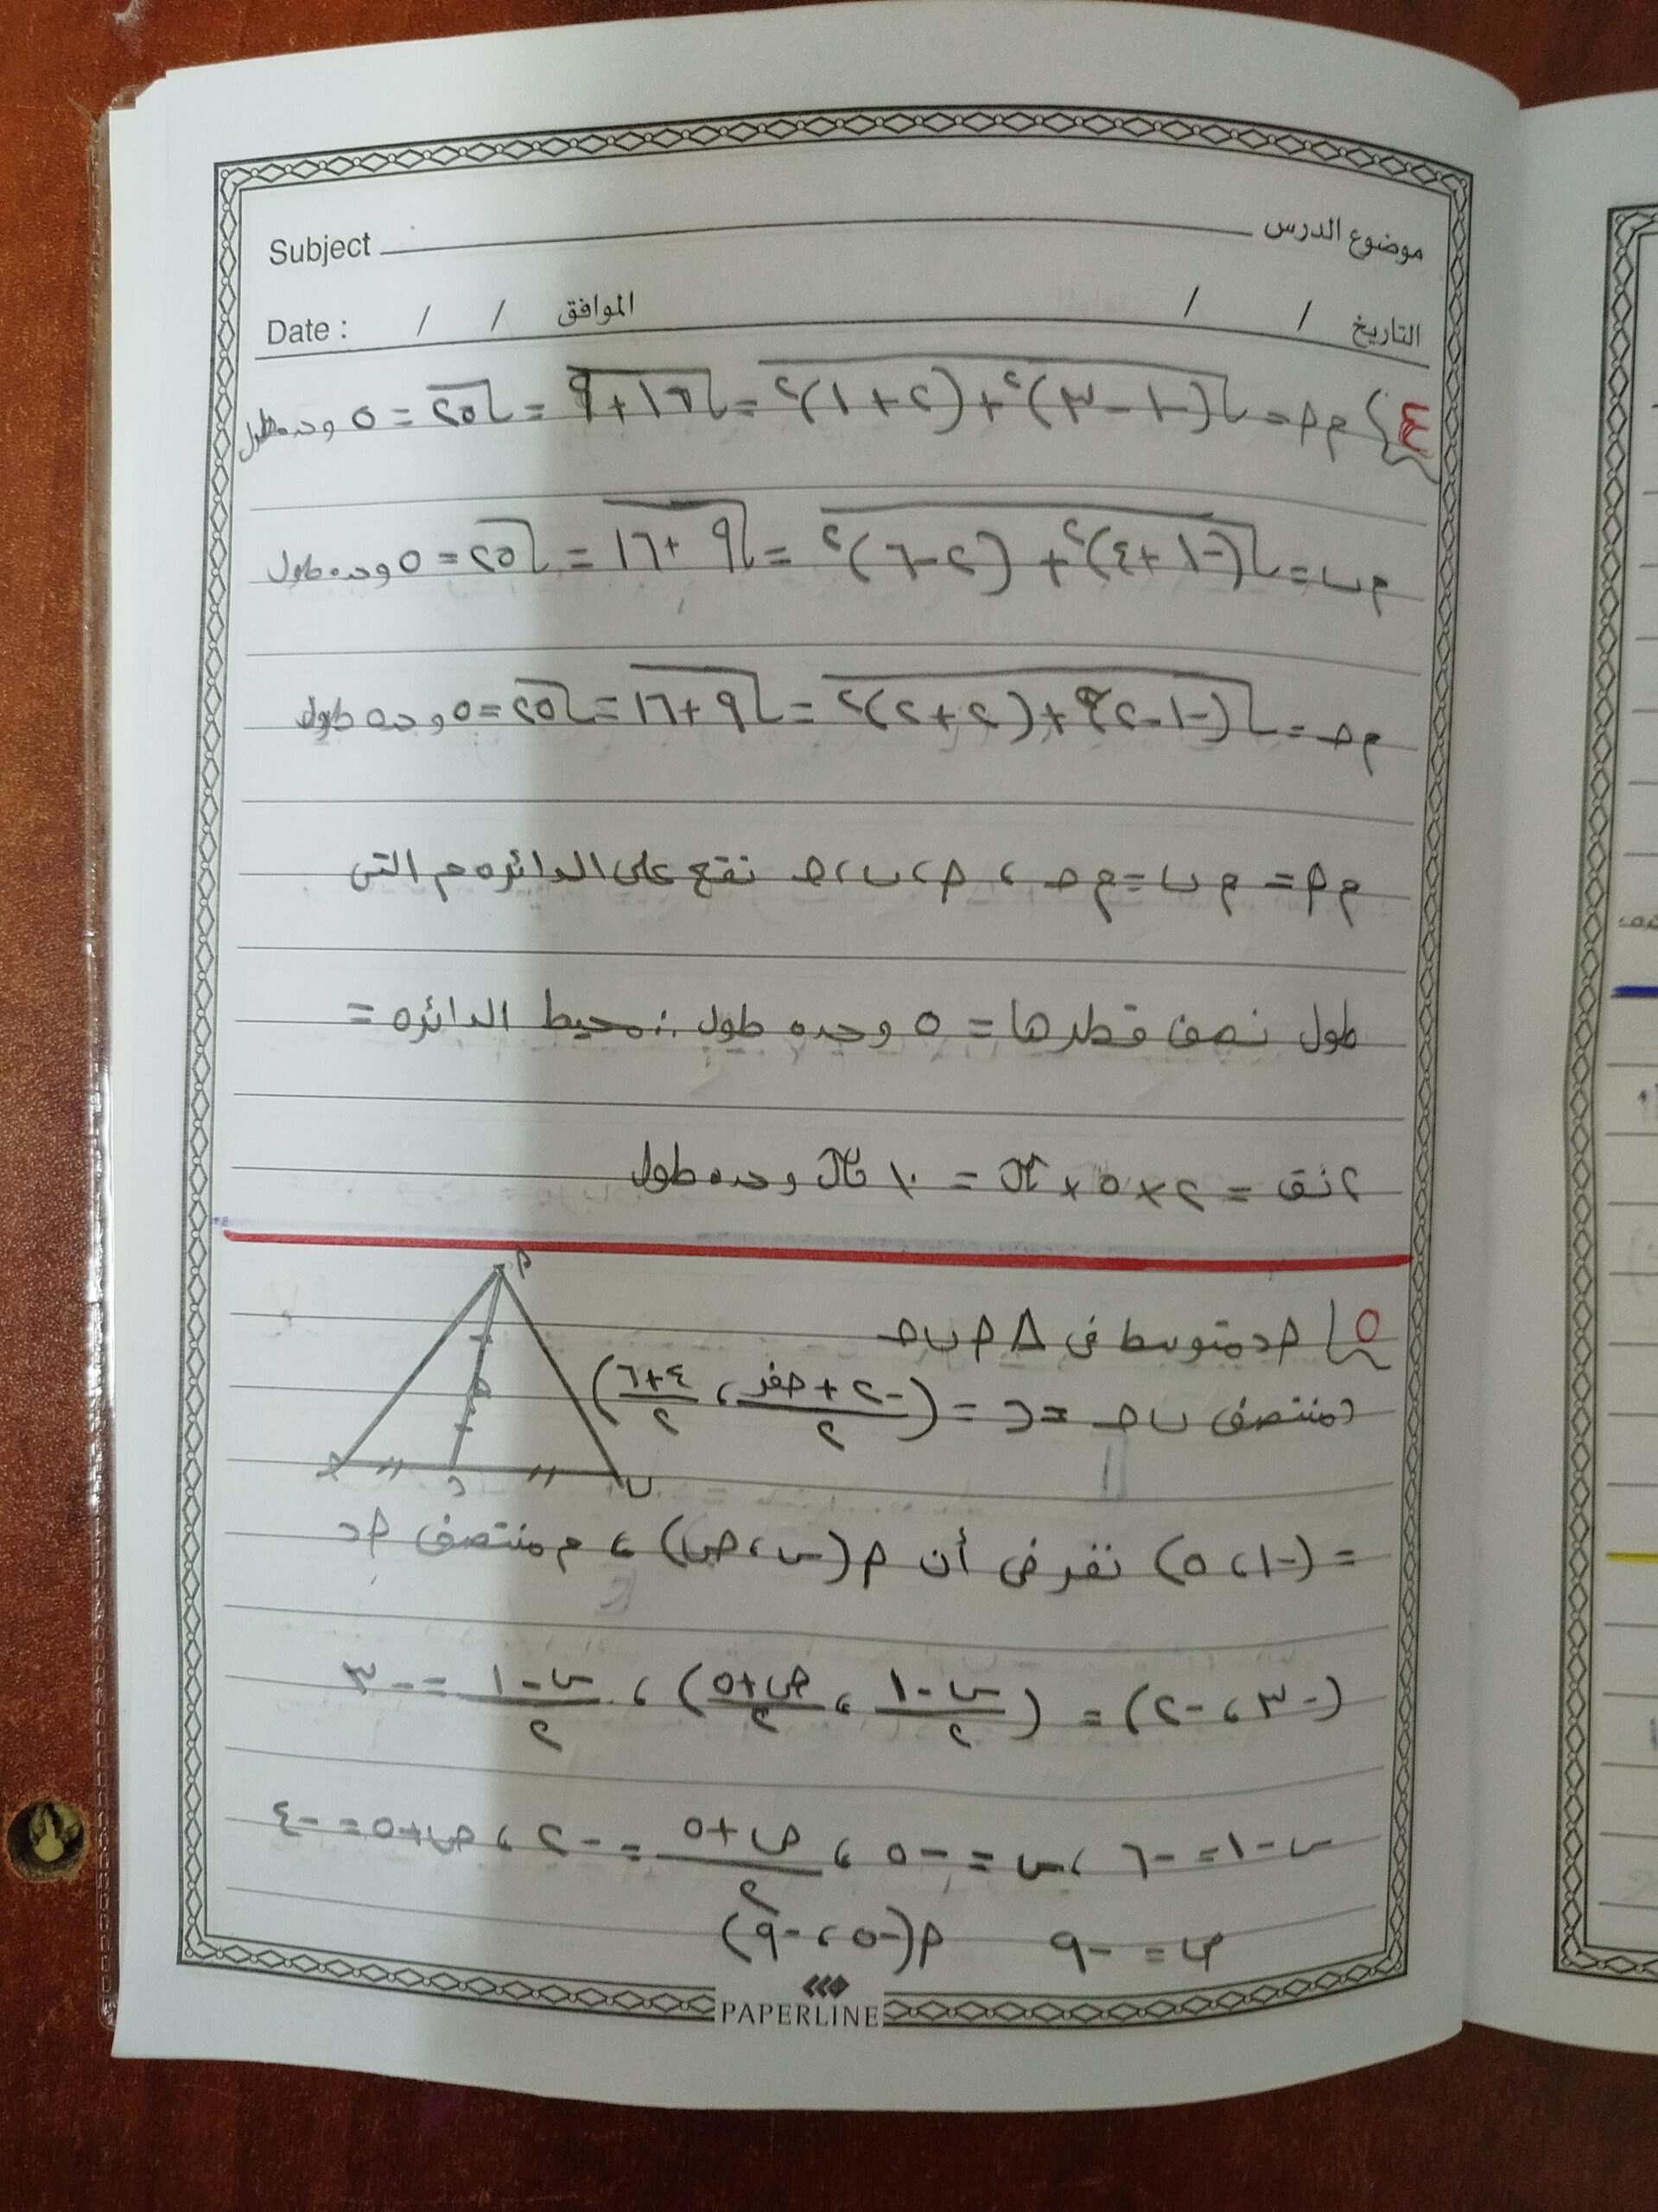 Subject موضوع الدرس
Date : / / الموافق / / التاريخ
٤} م٢ = √(-١-٣)٢+(٢+١)٢ = √١٦+٩ = √٢٥ = ٥ وحده طول
م ب = √(-١+٤)٢+(٢-٦)٢ = √٩+١٦ = √٢٥ = ٥ وحده طول
م ح = √(-١-٢)٢+(٢+٢)٢ = √٩+١٦ = √٢٥ = ٥ وحده طول
م٢ = م ب = م ح ، ٢، ب، ح تقع على الدائره م التى
طول نصف قطرها = ٥ وحده طول ∴ محيط الدائره =
٢ نق = ٢×٥×π = ١٠π وحده طول
٢
٥} ٢د متوسط فى Δ ٢ ب ح
د منتصف ب ح = د = (-٢+صفر/٢ ، ٤+٦/٢)
د ب
= (-١، ٥) نفرض أن ٢(س، ص) ، م منتصف ٢د
(-٣، -٢) = (س-١/٢ ، ص+٥/٢) ، س-١/٢ = -٣
س-١ = -٦ ، س = -٥ ، ص+٥/٢ = -٢ ، ص+٥ = -٤
ص = -٩ ٢(-٥، -٩)
PAPERLINE